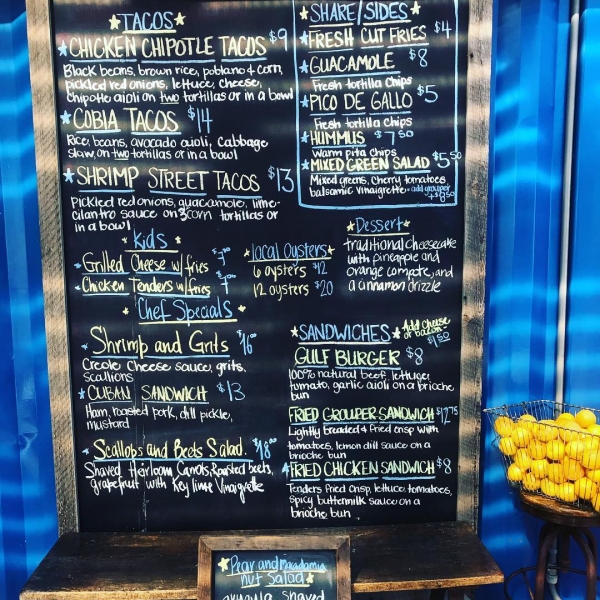 TACOS
CHICKEN CHIPOTLE TACOS $9
Black beans, brown rice, poblano & corn,
pickled red onions, lettuce, cheese,
chipotle aioli on two tortillas or in a bowl
COBIA TACOS $14
Rice, beans, avocado aioli, cabbage
slaw, on two tortillas or in a bowl
SHRIMP STREET TACOS $13
Pickled red onions, guacamole, lime-
cilantro sauce on 3 corn tortillas or
in a bowl
Kids
Grilled Cheese w/ fries $7
Chicken Tenders w/ fries $7
Chef Specials
Shrimp and Grits $16
Creole Cheese sauce, grits,
scallions
CUBAN SANDWICH $13
Ham, roasted pork, dill pickle,
mustard
Scallops and Beets Salad. $18
Shaved Heirloom Carrots, Roasted beets,
grapefruit with Key lime Vinaigrette
SHARE/SIDES
FRESH CUT FRIES $4
GUACAMOLE $8
Fresh tortilla chips
PICO DE GALLO $5
Fresh tortilla chips
HUMMUS $7.50
Warm pita chips
MIXED GREEN SALAD $5.50
Mixed greens, cherry tomatoes
balsamic vinaigrette - add grouper
+$8.50
local oysters
6 oysters $12
12 oysters $20
Dessert
traditional cheesecake
with pineapple and
orange compote, and
a cinnamon drizzle
SANDWICHES Add cheese
or bacon
$1.50
GULF BURGER $8
100% natural beef, lettuce,
tomato, garlic aioli on a brioche
bun
FRIED GROUPER SANDWICH $12.75
Lightly breaded & fried crisp with
tomatoes, lemon dill sauce on a
brioche bun
FRIED CHICKEN SANDWICH $8
Tenders fried crisp, lettuce, tomatoes,
spicy buttermilk sauce on a
brioche bun
Pear and Macadamia
nut Salad
arugula shaved